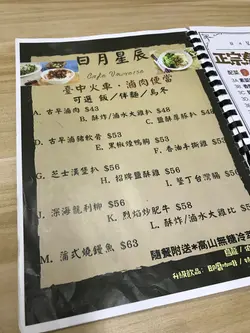 日月星辰
Cafe Universe
臺中火車·滷肉便當
可選 飯/伴麵/烏冬
A. 古早滷肉 $43
B. 酥炸/滷水大雞扒 $48
C. 鹽酥厚豚扒 $48
D. 古早滷豬軟骨 $53
E. 黑椒燒鴨胸 $53
F. 香油手撕雞 $53
G. 芝士漢堡扒 $56
H. 招牌鹽酥雞 $56
I. 墾丁台灣腸 $56
J. 深海龍利柳 $56
K. 烈焰炒肥牛 $58
L. 酥炸/滷水大雞比 $58
M. 蒲式燒鰻魚 $63
隨餐附送*高山無糖冷
正宗